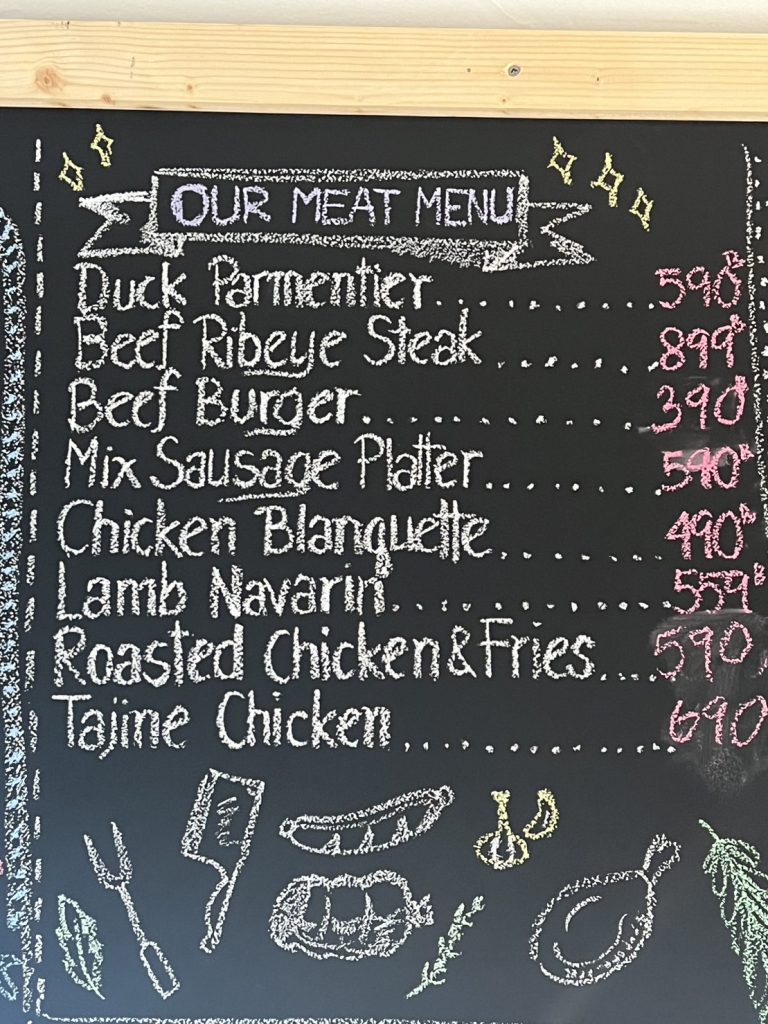 OUR MEAT MENU
Duck Parmentier.................590฿
Beef Ribeye Steak.........899฿
Beef Burger.................390฿
Mix Sausage Platter...........590฿
Chicken Blanquette...........490฿
Lamb Navarin.................559฿
Roasted Chicken&Fries....590
Tajine Chicken.................690